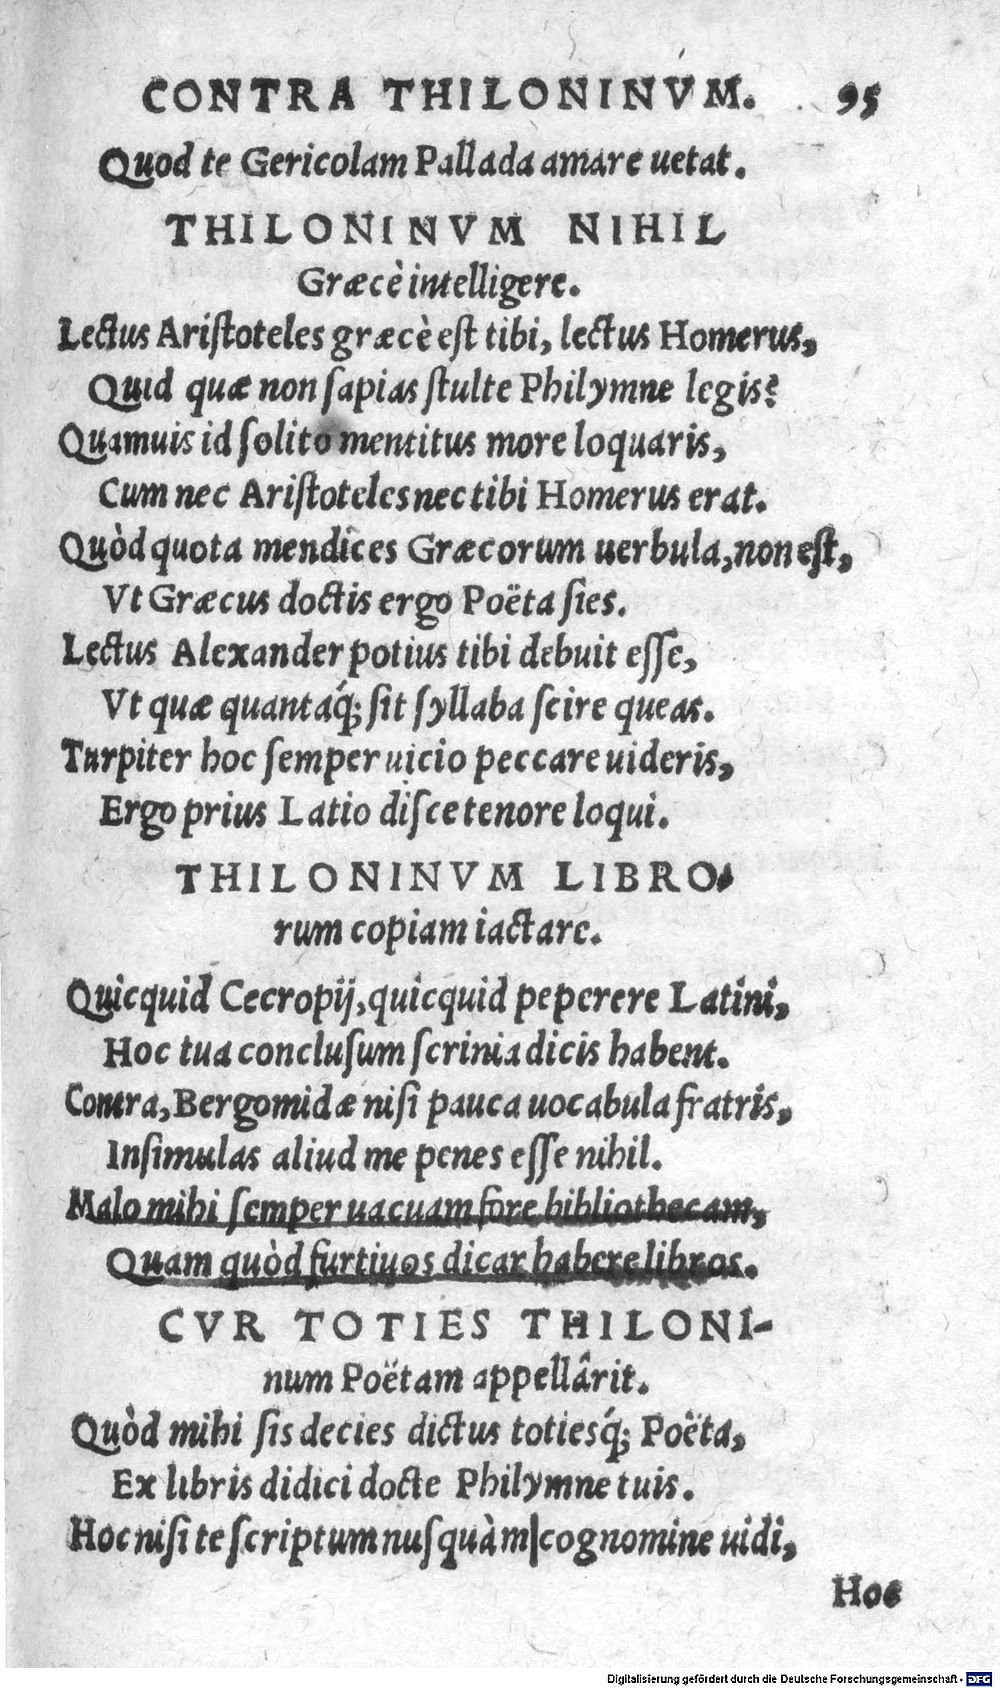 CONTRA THILONINVM. 95
Quod te Gericolam Pallada amare uetat.
THILONINVM NIHIL
Græcè intelligere.
Lectus Ariſtoteles græcè eſt tibi, lectus Homerus,
Quid quæ non ſapias ſtulte Philymne legis?
Quamuis id ſolito mentitus more loquaris,
Cum nec Ariſtoteles nec tibi Homerus erat.
Quòd quota mendices Græcorum uerbula, non eſt,
Vt Græcus doctis ergo Poëta ſies.
Lectus Alexander potius tibi debuit eſſe,
Vt quæ quantaq́; ſit ſyllaba ſcire queas.
Turpiter hoc ſemper uicio peccare uideris,
Ergo prius Latio diſce tenore loqui.
THILONINVM LIBRO-
rum copiam iactare.
Quicquid Cecropij, quicquid peperere Latini,
Hoc tua concluſum ſcrinia dicis habent.
Contra, Bergomidæ niſi pauca uocabula fratris,
Inſimulas aliud me penes eſſe nihil.
Malo mihi ſemper uacuam fore bibliothecam,
Quam quòd furtiuos dicar habere libros.
CVR TOTIES THILONI-
num Poëtam appellârit.
Quòd mihi ſis decies dictus totiesq́; Poëta,
Ex libris didici docte Philymne tuis.
Hoc niſi te ſcriptum nuſquàm cognomine uidi,
Hoc
Digitalisierung gefördert durch die Deutsche Forschungsgemeinschaft - DFG